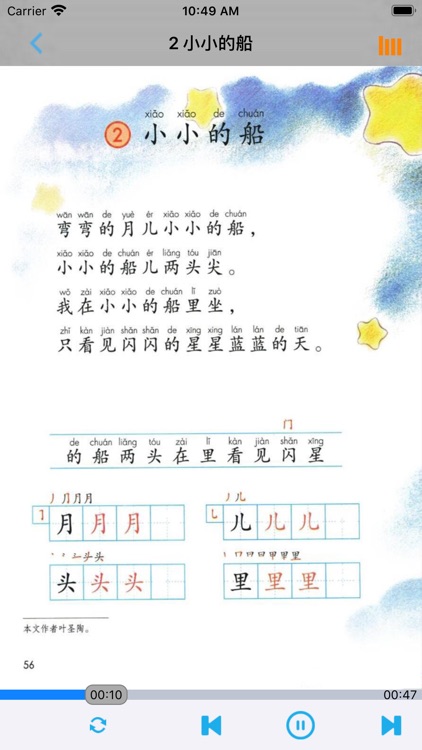 Carrier 10:49 AM
2 小小的船
xiǎo xiǎo de chuán
2 小小的船
wān wān de yuè ér xiǎo xiǎo de chuán
弯弯的月儿小小的船，
xiǎo xiǎo de chuán ér liǎng tóu jiān
小小的船儿两头尖。
wǒ zài xiǎo xiǎo de chuán lǐ zuò
我在小小的船里坐，
zhǐ kàn jiàn shǎn shǎn de xīng xing lán lán de tiān
只看见闪闪的星星蓝蓝的天。
门
de chuán liǎng tóu zài lǐ kàn jiàn shǎn xīng
的船两头在里看见闪星
月月月
儿儿儿
头头头
里里里
本文作者叶圣陶。
56
00:10 00:47